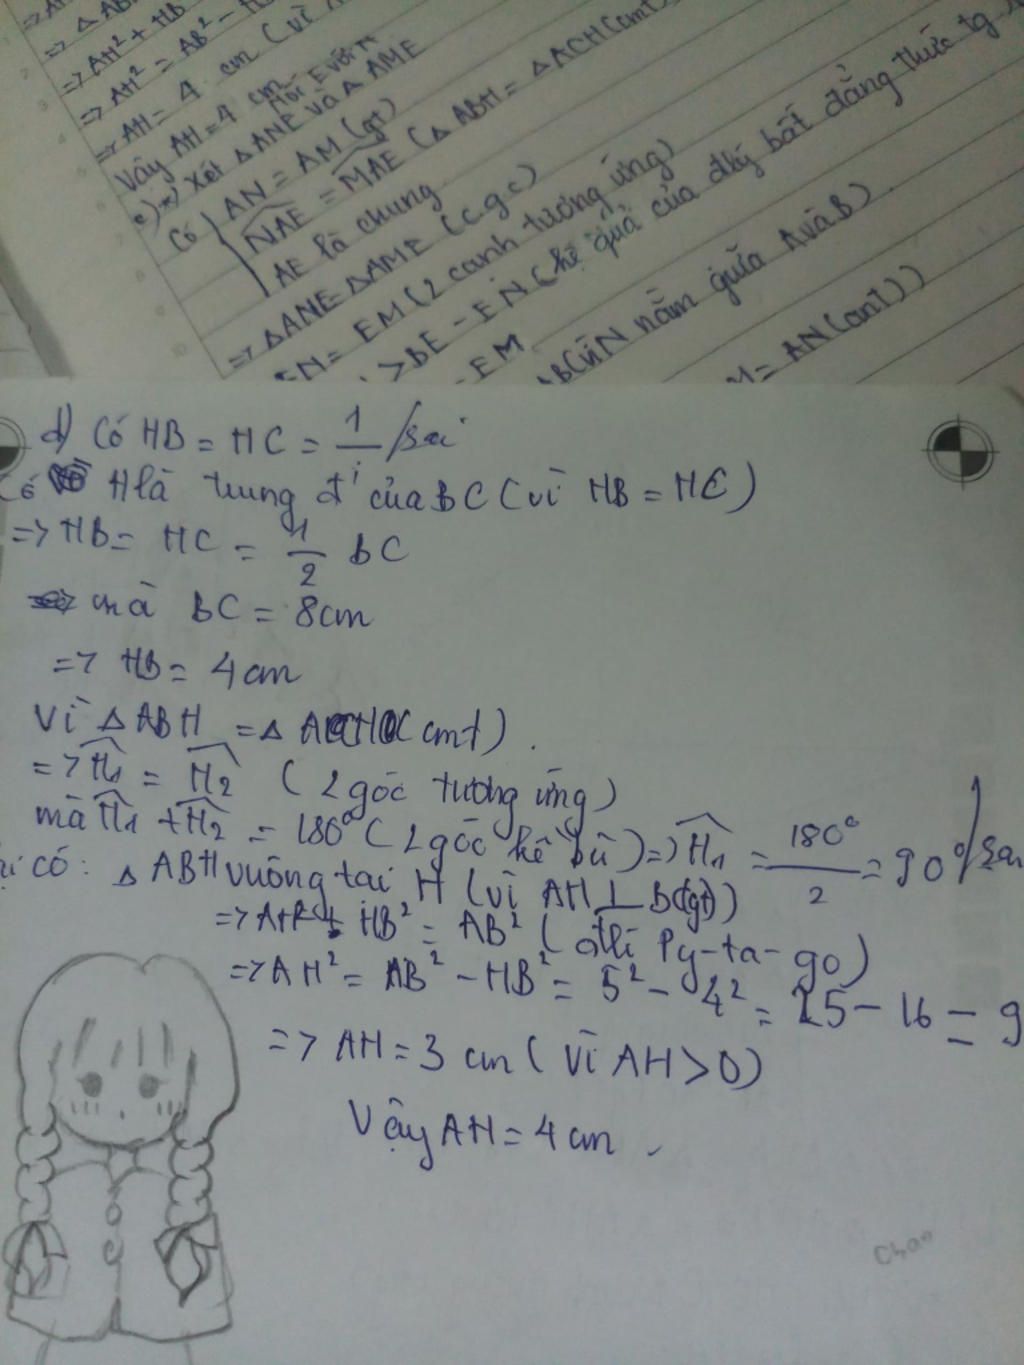 => AH² + HB
=> AH² = AB² -
=> AH = 4 cm (vì
Vậy AH = 4 cm
c) *) Xét △ANE và △AME
Có AN = AM (gt)
NAE = MAE (△ABH = △ACH (cmt)
AE là chung
=> △ANE = △AME (c.g.c)
EN = EM (2 cạnh tương ứng)
> BE - EN (hệ quả của đlý bất đẳng thức tg
- EM
N nằm giữa A và B)
= AN (cmt))
d) Có HB = HC = 1 / sai
Có H là trung đ' của BC (vì HB = HC)
=> HB = HC = 1/2 BC
mà BC = 8cm
=> HB = 4 cm
Vì △ABH = △ACH (cmt).
=> H1 = H2 (2 góc tương ứng)
mà H1 + H2 = 180° (2 góc kề bù) => H1 = 180°/2 = 90° / sai
có: △ABH vuông tại H (vì AH ⊥ B (gt))
=> AH² + HB² = AB² (đlí Py-ta-go)
=> AH² = AB² - HB² = 5² - 4² = 25 - 16 = 9
=> AH = 3 cm (vì AH > 0)
Vậy AH = 4 cm.